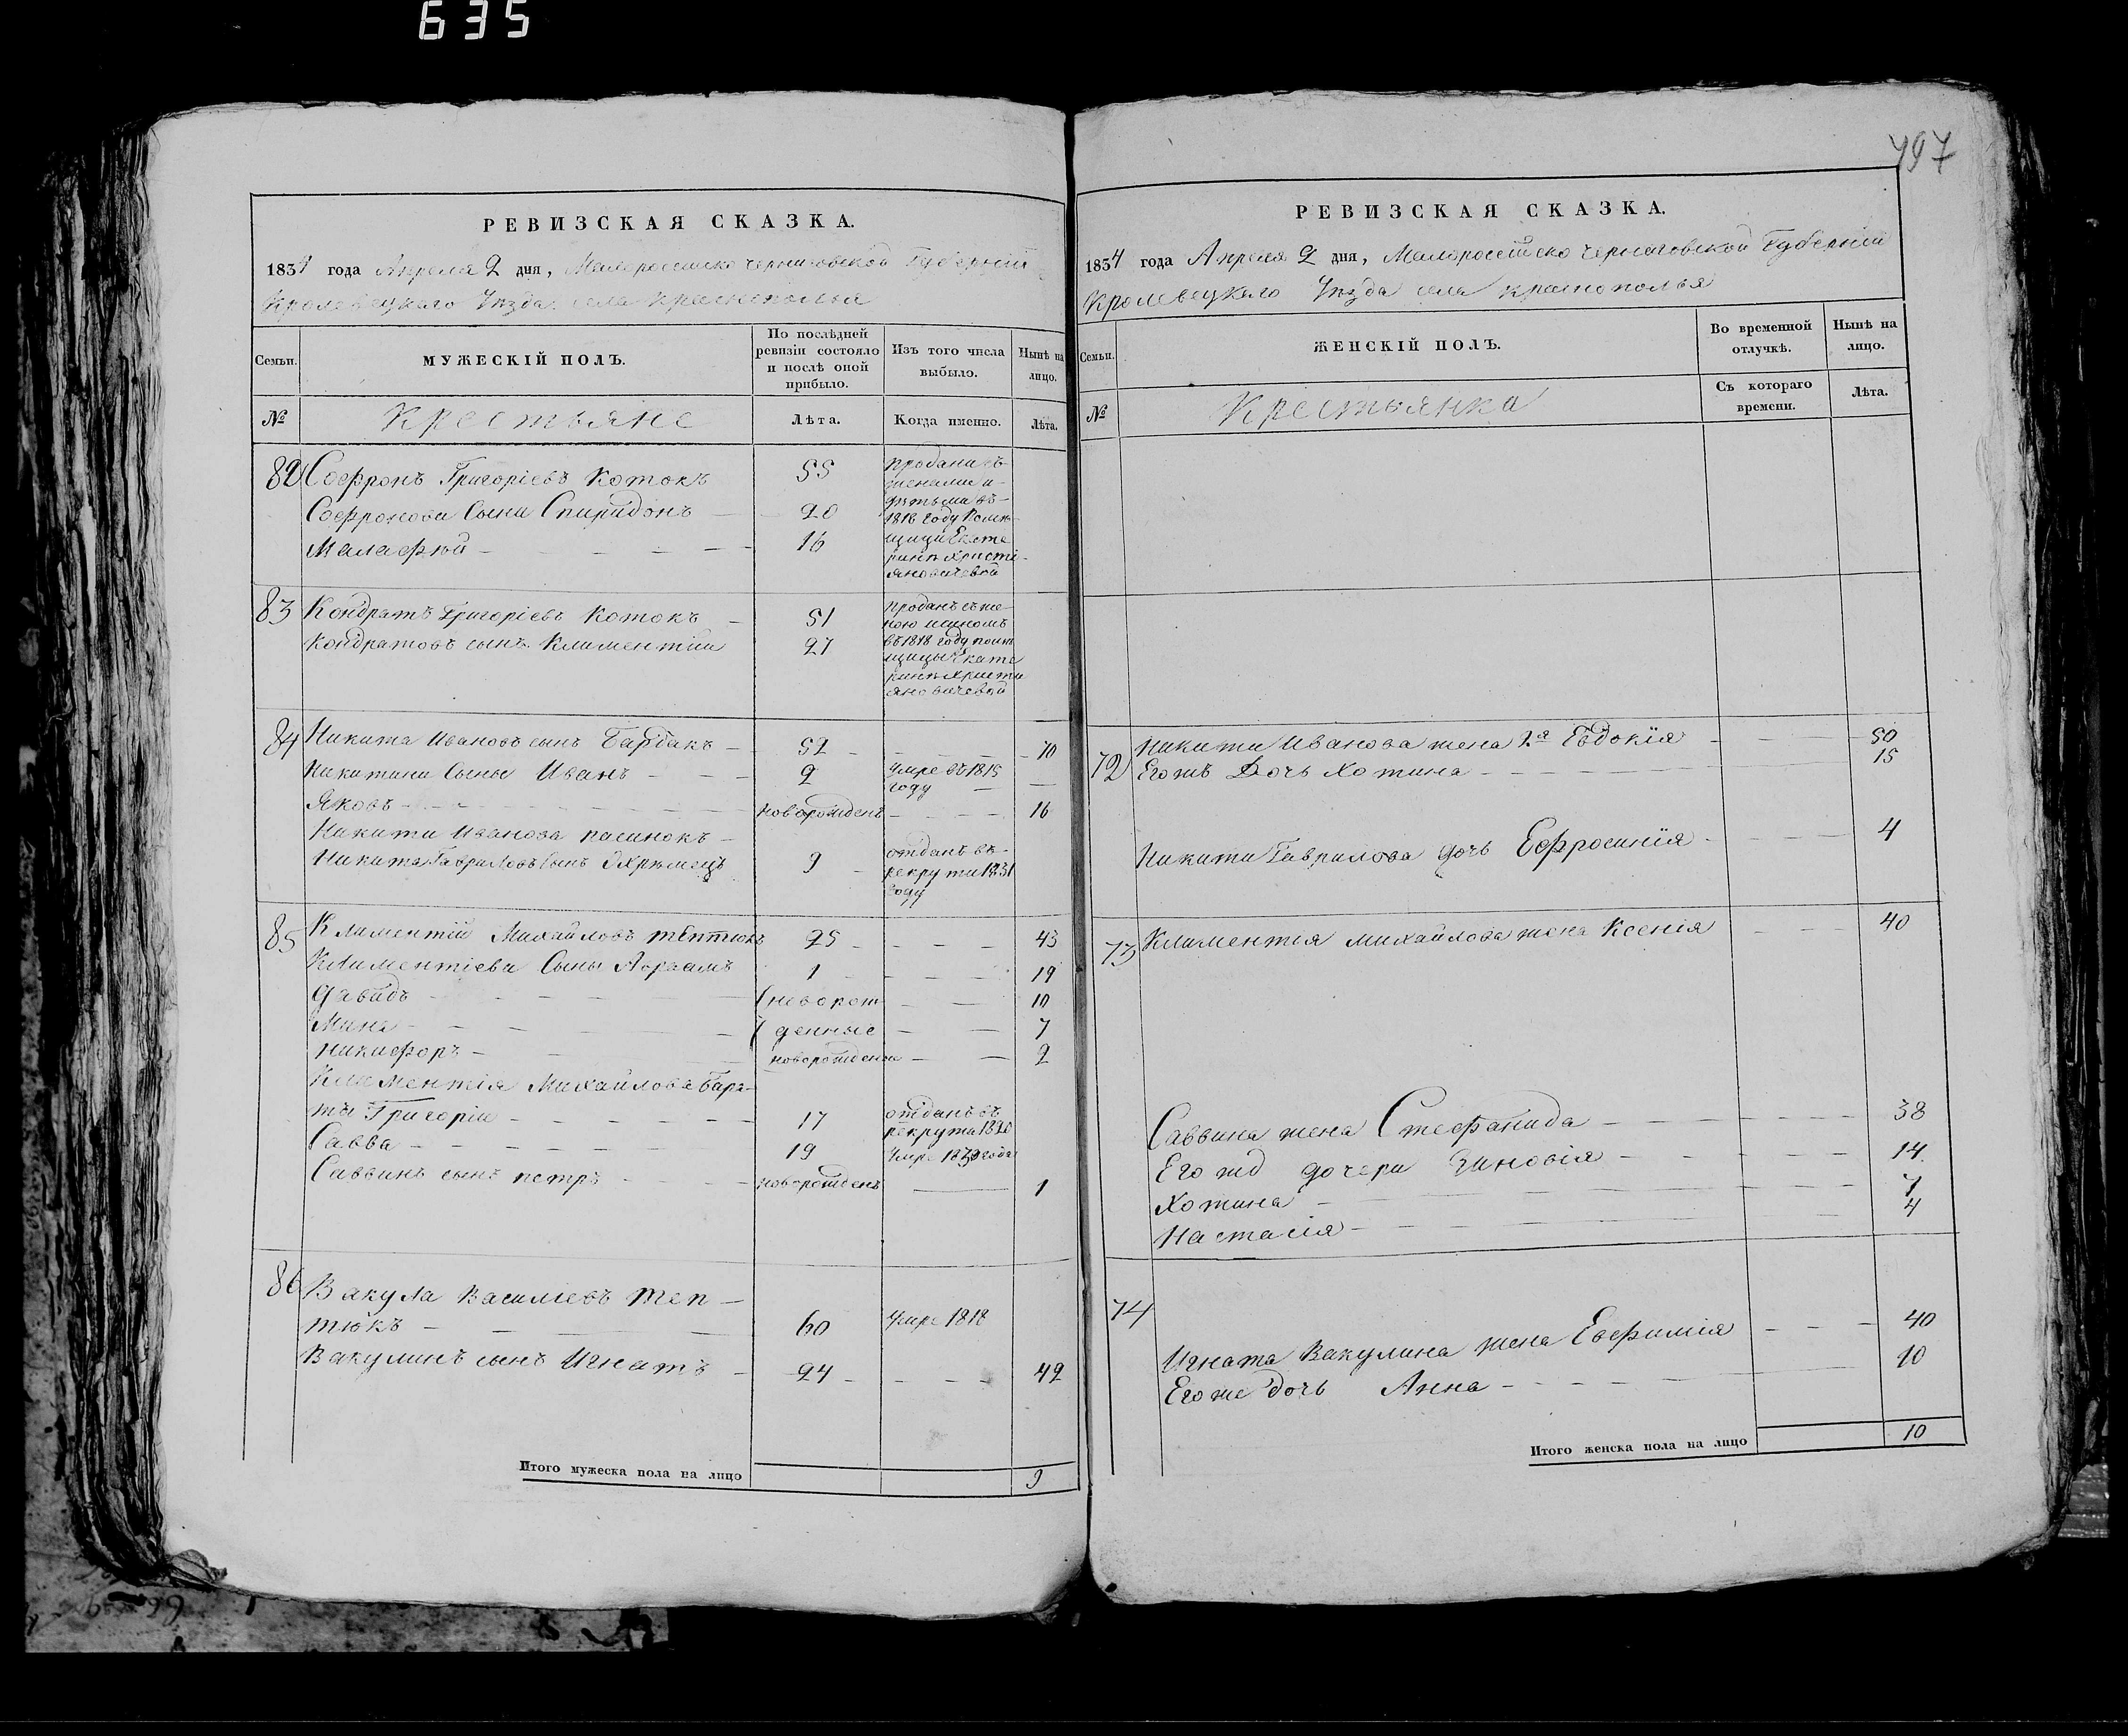 635
797
РЕВИЗСКАЯ СКАЗКА.
1834 года Апреля 2 дня, Малороссійско Черниговской Губерніи
Кролевецкаго Уѣзда села Краснополья
Семьи. МУЖЕСКІЙ ПОЛЪ. По послѣдней ревизіи состояло и послѣ оной прибыло. Изъ того числа выбыло. Нынѣ на лицо.
№ Крестьяне Лѣта. Когда именно. Лѣта.
82 Софронъ Григоріевъ Котокъ 55 проданы съ
женами и
Софронови Сыни Спиридонъ 20 дѣтьми въ
1818 году Помѣ
Малафѣй 16 щици Екате
ринѣ Христі
яновичевой
83 Кондратъ Григоріевъ Котокъ 51 проданъ съ же
ною и сыномъ
Кондратовъ сынъ Климентій 27 въ 1818 году помѣ
щицы Екате
ринѣ Христи
яновичевой
84 Никита Ивановъ сынъ Бардакъ 52 70
Никитини Сыны Иванъ 2 умре въ 1815
году
Яковъ новорожденъ 16
Никити Иванова пасинокъ
Никита Гавриловъ сынъ 9 отданъ въ
рекрути 1831
году
85 Климентій Михайловъ Тептюкъ 25 43
Климентіеви Сыны Авраамъ 1 19
Давидъ (новорож 10
Мина (денные 7
Никифоръ новорожденъ 2
Климентія Михайлова бара-
ты Григорій 17 отданъ въ
рекрута 1820
Савва 19 умре 1830 года
Саввинъ сынъ Петръ новорожденъ 1
86 Вакула Василіевъ Теп-
тюкъ 60 умре 1818
Вакулинъ сынъ Игнатъ 24 42
Итого мужеска пола на лицо 9
РЕВИЗСКАЯ СКАЗКА.
1834 года Апреля 2 дня, Малороссійско Черниговской Губерніи
Кролевецкаго Уѣзда села Краснополья
Семьи. ЖЕНСКІЙ ПОЛЪ. Во временной отлучкѣ. Нынѣ на лицо.
№ Крестьянка Съ котораго времени. Лѣта.
72 Никити Иванова жена 2я Евдокія 50
Егожъ Дочь Хотина 15
Никити Гаврилова дочь Ефросинія 4
73 Климентія Михайлова жена Ксенія 40
Саввина жена Стефанида 38
Его жъ дочери Зиновія 14
Хотина 7
Настасія 4
74
Игната Вакулина жена Евфимія 40
Его же дочь Анна 10
Итого женска пола на лицо 10